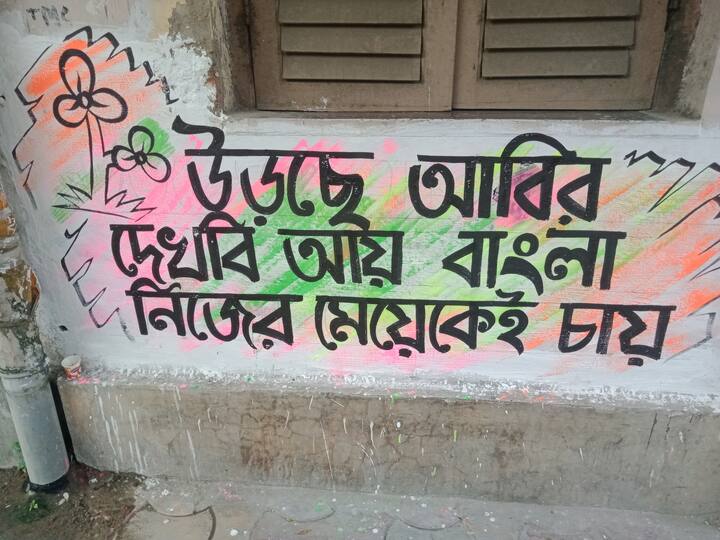 TMC
উড়ছে আবির
দেখবি আয় বাংলা
নিজের মেয়েকেই চায়